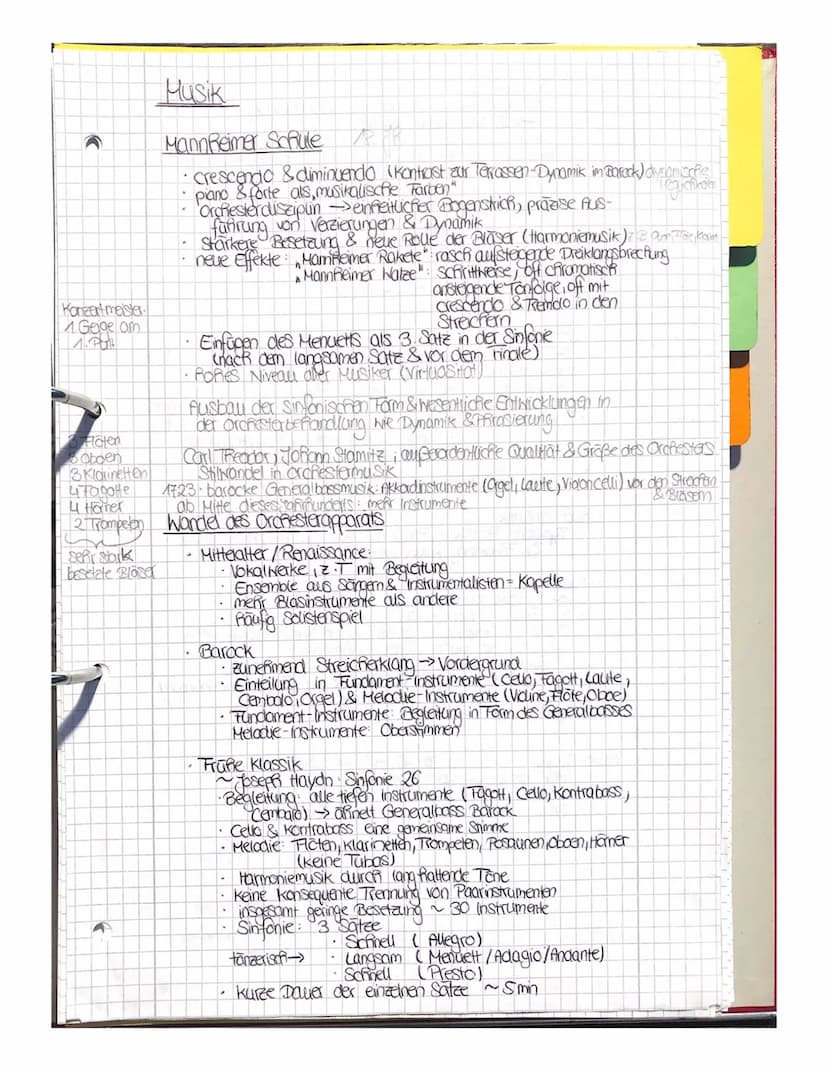 Musik
Mannheimer Schule
· crescendo & diminuendo (Kontrast zur Terrassen-Dynamik im Barock) dynamische
Möglichkeit
· piano & forte als „musikalische Farben"
· Orchesterdisziplin → einheitlicher Bogenstrich, präzise Aus-
führung von Verzierungen & Dynamik
· Stärkere Besetzung & neue Rolle der Bläser (Harmoniemusik)
· neue Effekte: „Mannheimer Rakete": rasch aufsteigende Dreiklangsbrechung
„Mannheimer Walze": schrittweise, oft chromatisch
ansteigende Tonfolge, oft mit
crescendo & Tremolo in den
Streichern
Konzertmeister:
1. Geige am
1. Pult
· Einfügen des Menuetts als 3. Satz in der Sinfonie
(nach dem langsamen Satz & vor dem Finale)
· hohes Niveau aller Musiker (Virtuosität)
Ausbau der sinfonischen Form & wesentliche Entwicklungen in
der Orchesterbehandlung wie Dynamik & Phrasierung
Flöten
Oboen
3 Klarinetten
4 Fagotte
4 Hörner
2 Trompeten
sehr stark
besetzte Bläser
Carl Theodor, Johann Stamitz, außerordentliche Qualität & Größe des Orchesters
Stilwandel in Orchestermusik
1723: barocke Generalbassmusik: Akkordinstrumente (Orgel, Laute, Violoncelli) vor den Streichern
& Bläsern
ab Mitte dieses Jahrhunderts: mehr Instrumente
Wandel des Orchesterapparats
· Mittelalter / Renaissance:
· Vokalwerke, z.T mit Begleitung
· Ensemble aus Sängern & Instrumentalisten = Kapelle
· mehr Blasinstrumente als andere
· häufig Solistenspiel
· Barock
· zunehmend Streicherklang → Vordergrund
· Einteilung in Fundament-Instrumente (Cello, Fagott, Laute,
Cembalo, Orgel) & Melodie-Instrumente (Violine, Flöte, Oboe)
· Fundament-Instrumente: Begleitung in Form des Generalbasses
Melodie-Instrumente: Oberstimmen
· Frühe Klassik
~ Joseph Haydn: Sinfonie 26
· Begleitung: alle tiefen Instrumente (Fagott, Cello, Kontrabass,
Cembalo) → ähnelt Generalbass Barock
· Cello & Kontrabass eine gemeinsame Stimme
· Melodie: Flöten, Klarinetten, Trompeten, Posaunen, Oboen, Hörner
(keine Tubas)
· Harmoniemusik durch lang haltende Töne
· keine konsequente Trennung von Paarinstrumenten
· insgesamt geringe Besetzung ~ 30 Instrumente
· Sinfonie: 3 Sätze
· Schnell (Allegro)
tänzerisch → · Langsam (Menuett / Adagio / Andante)
· Schnell (Presto)
· kurze Dauer der einzelnen Sätze ~ 5 min